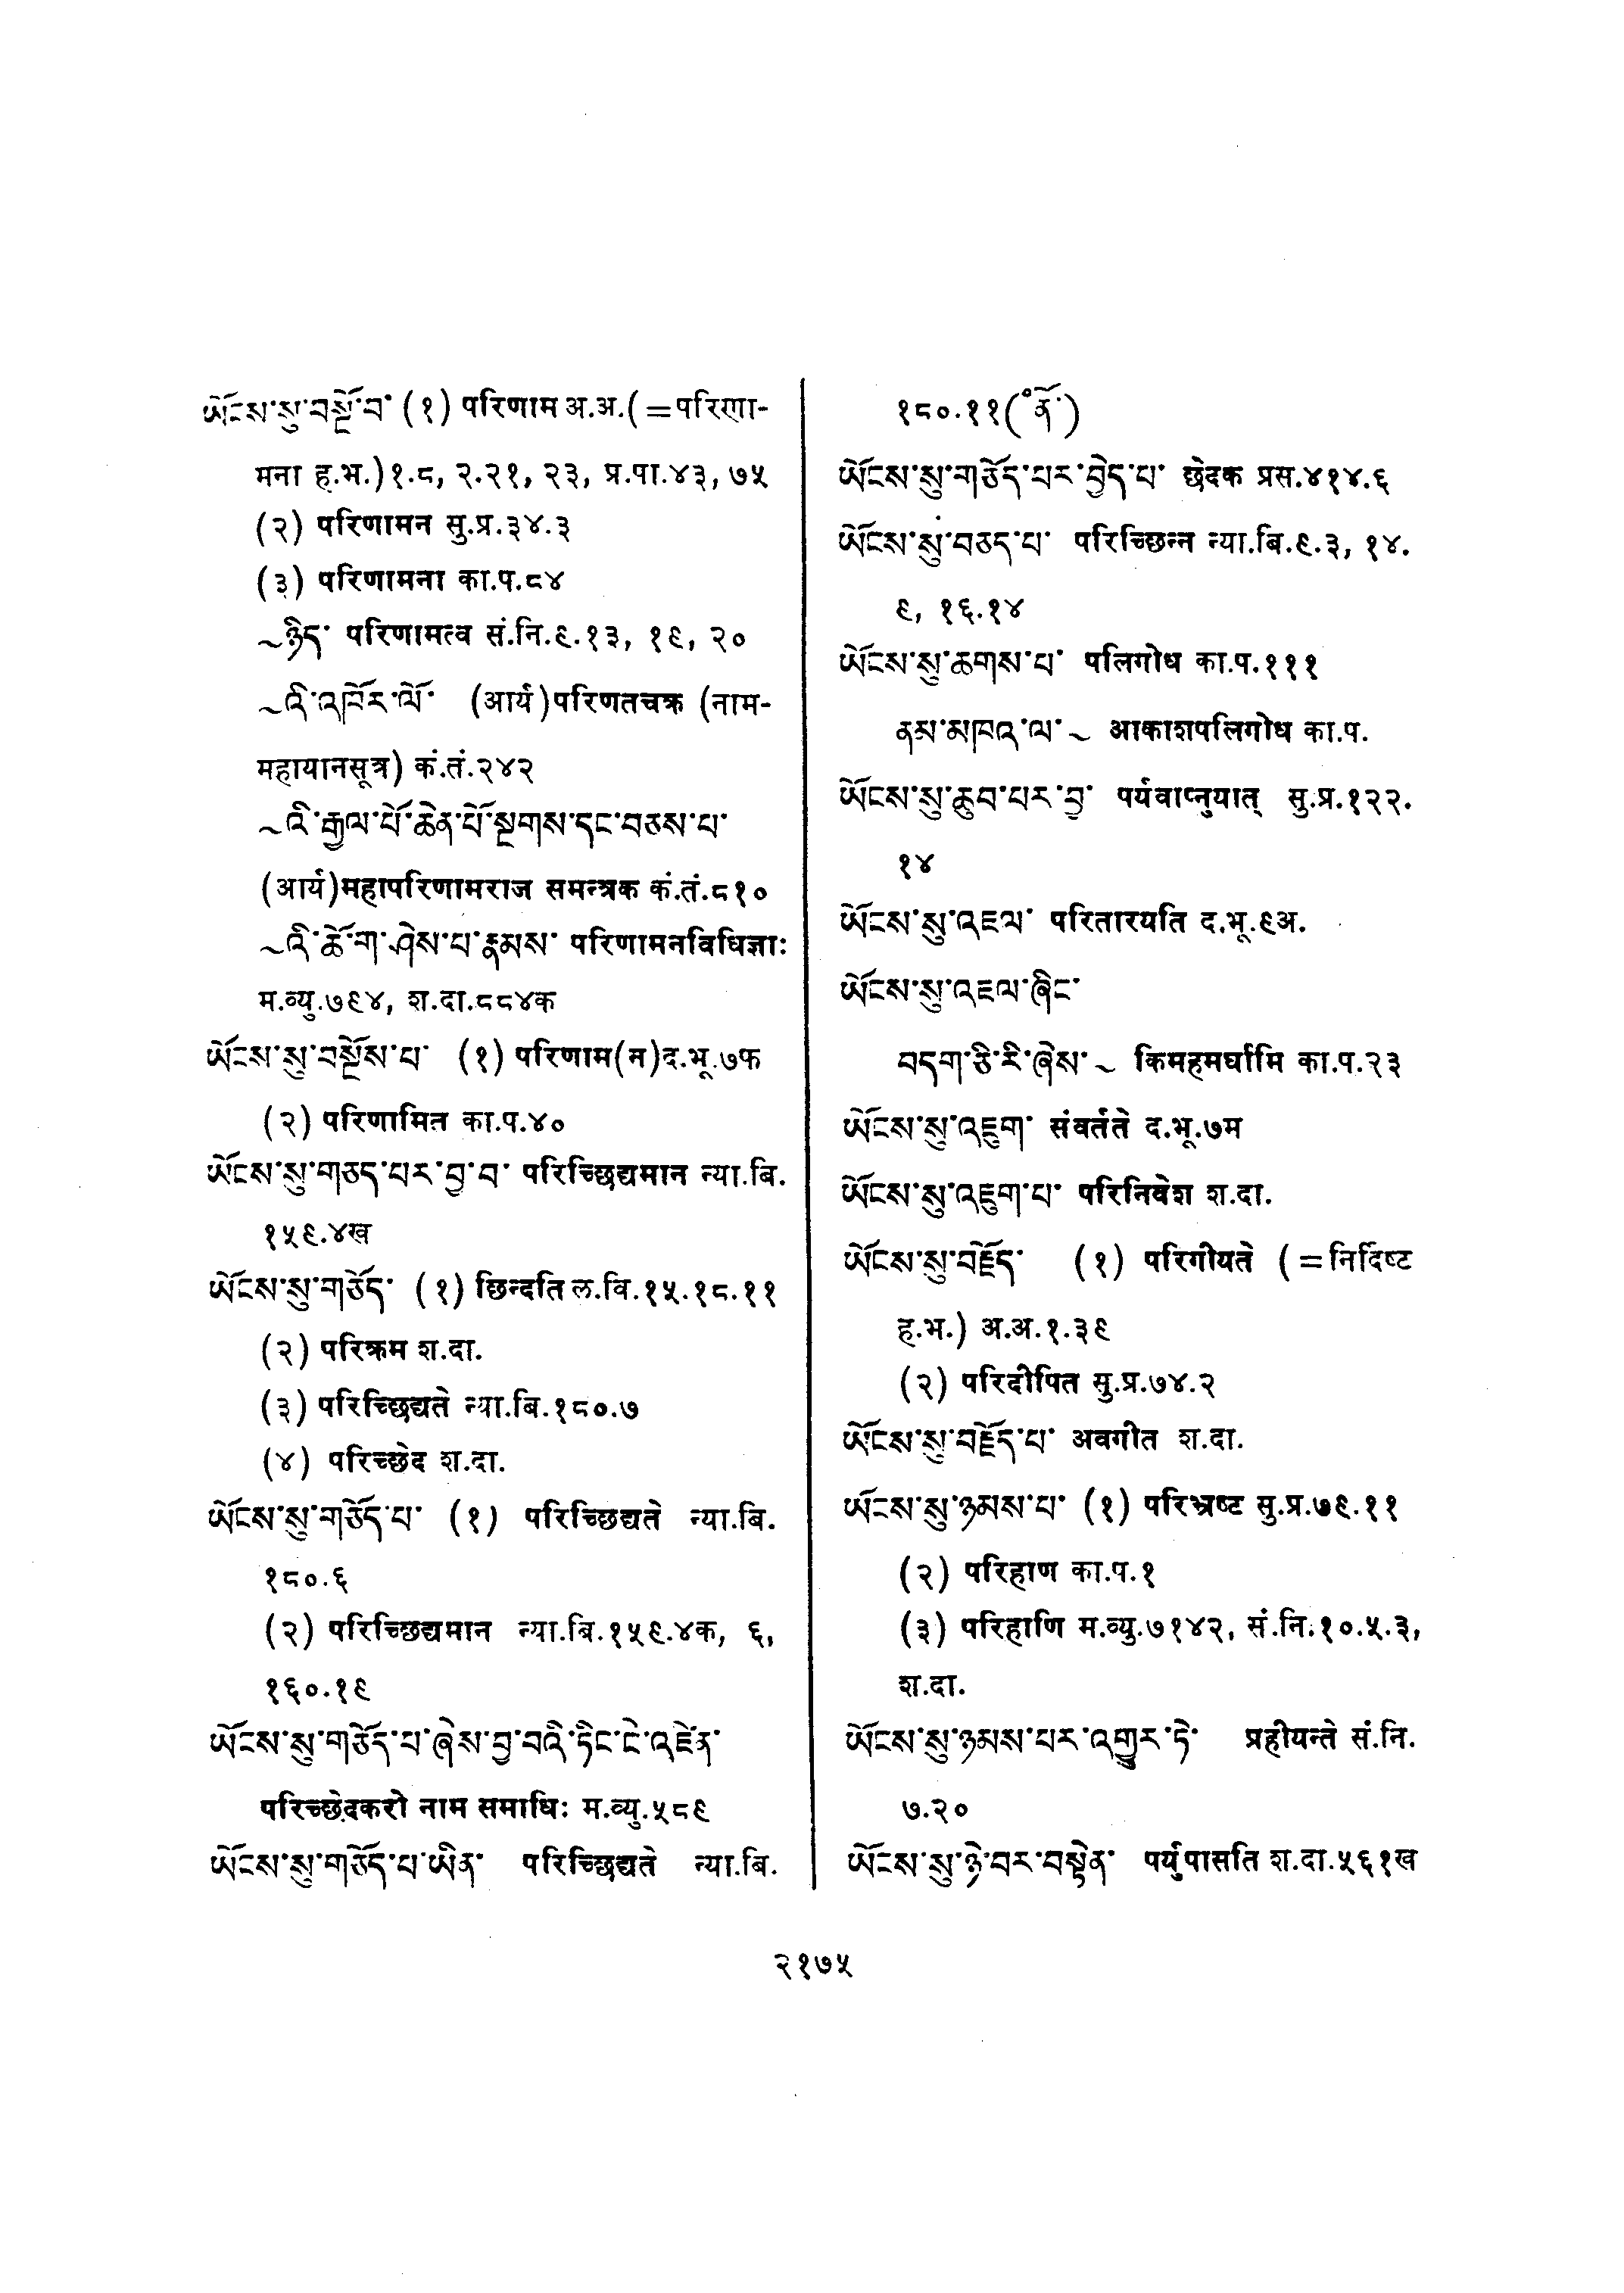 ཡོངས་སུ་བསྔོ་བ་ (१) परिणाम अ.अ.(=परिणा-
मना ह.भ.)१.८, २.२१, २३, प्र.पा.४३, ७५
(२) परिणामन सु.प्र.३४.३
(३) परिणामना का.प.८४
~ཉིད་ परिणामत्व सं.नि.९.१३, १९, २०
~འི་འཁོར་ལོ་ (आर्य)परिणतचक्र (नाम-
महायानसूत्र) कं.तं.२४२
~འི་རྒྱལ་པོ་ཆེན་པོ་སྔགས་དང་བཅས་པ་
(आर्य)महापरिणामराज समन्त्रक कं.तं.८१०
~འི་ཆོ་ག་ཤེས་པ་རྣམས་ परिणामनविधिज्ञाः
म.व्यु.७९४, श.दा.८८४क
ཡོངས་སུ་བསྔོས་པ་ (१) परिणाम(म)द.भू.७फ
(२) परिणामित का.प.४०
ཡོངས་སུ་གཅད་པར་བྱ་བ་ परिच्छिद्यमान न्या.बि.
१५९.४ख
ཡོངས་སུ་གཅོད་ (१) छिन्दति ल.वि.१५.१८.११
(२) परिक्रम श.दा.
(३) परिच्छिद्यते न्या.बि.१८०.७
(४) परिच्छेद श.दा.
ཡོངས་སུ་གཅོད་པ་ (१) परिच्छिद्यते न्या.बि.
१८०.६
(२) परिच्छिद्यमान न्या.बि.१५९.४क, ६,
१६०.१९
ཡོངས་སུ་གཅོད་པ་ཞེས་བྱ་བའི་ཏིང་ངེ་འཛིན་
परिच्छेदकरो नाम समाधिः म.व्यु.५८९
ཡོངས་སུ་གཅོད་པ་ཡིན་ परिच्छिद्यते न्या.बि.
१८०.११(°ནོ་)
ཡོངས་སུ་གཅོད་པར་བྱེད་པ་ छेदक प्रस.४१४.६
ཡོངས་སུ་བཅད་པ་ परिच्छिन्न न्या.बि.९.३, १४.
९, १६.१४
ཡོངས་སུ་ཆགས་པ་ पलिगोध का.प.१११
ནས་མཁའ་ལ་~ आकाशपलिगोध का.प.
ཡོངས་སུ་ཆུབ་པར་བྱ་ पर्यवाप्नुयात् सु.प्र.१२२.
१४
ཡོངས་སུ་འཇལ་ परितारयति द.भू.९अ.
ཡོངས་སུ་འཇལ་ཞིང་
བདག་ཅི་རི་ཞེས་~ किमहमर्घामि का.प.२३
ཡོངས་སུ་འཇུག་ संवर्तते द.भू.७म
ཡོངས་སུ་འཇུག་པ་ परिनिवेश श.दा.
ཡོངས་སུ་བརྗོད་ (१) परिगीयते (=निर्दिष्ट
ह.भ.) अ.अ.१.३९
(२) परिदीपित सु.प्र.७४.२
ཡོངས་སུ་བརྗོད་པ་ अवगीत श.दा.
ཡོངས་སུ་ཉམས་པ་ (१) परिभ्रष्ट सु.प्र.७९.११
(२) परिहाण का.प.१
(३) परिहाणि म.व्यु.७१४२, सं.नि.१०.५.३,
श.दा.
ཡོངས་སུ་ཉམས་པར་འགྱུར་ཏེ་ प्रहीयन्ते सं.नि.
७.२०
ཡོངས་སུ་ཉེ་བར་བསྟེན་ पर्युपासति श.दा.५६१ख
२१७५